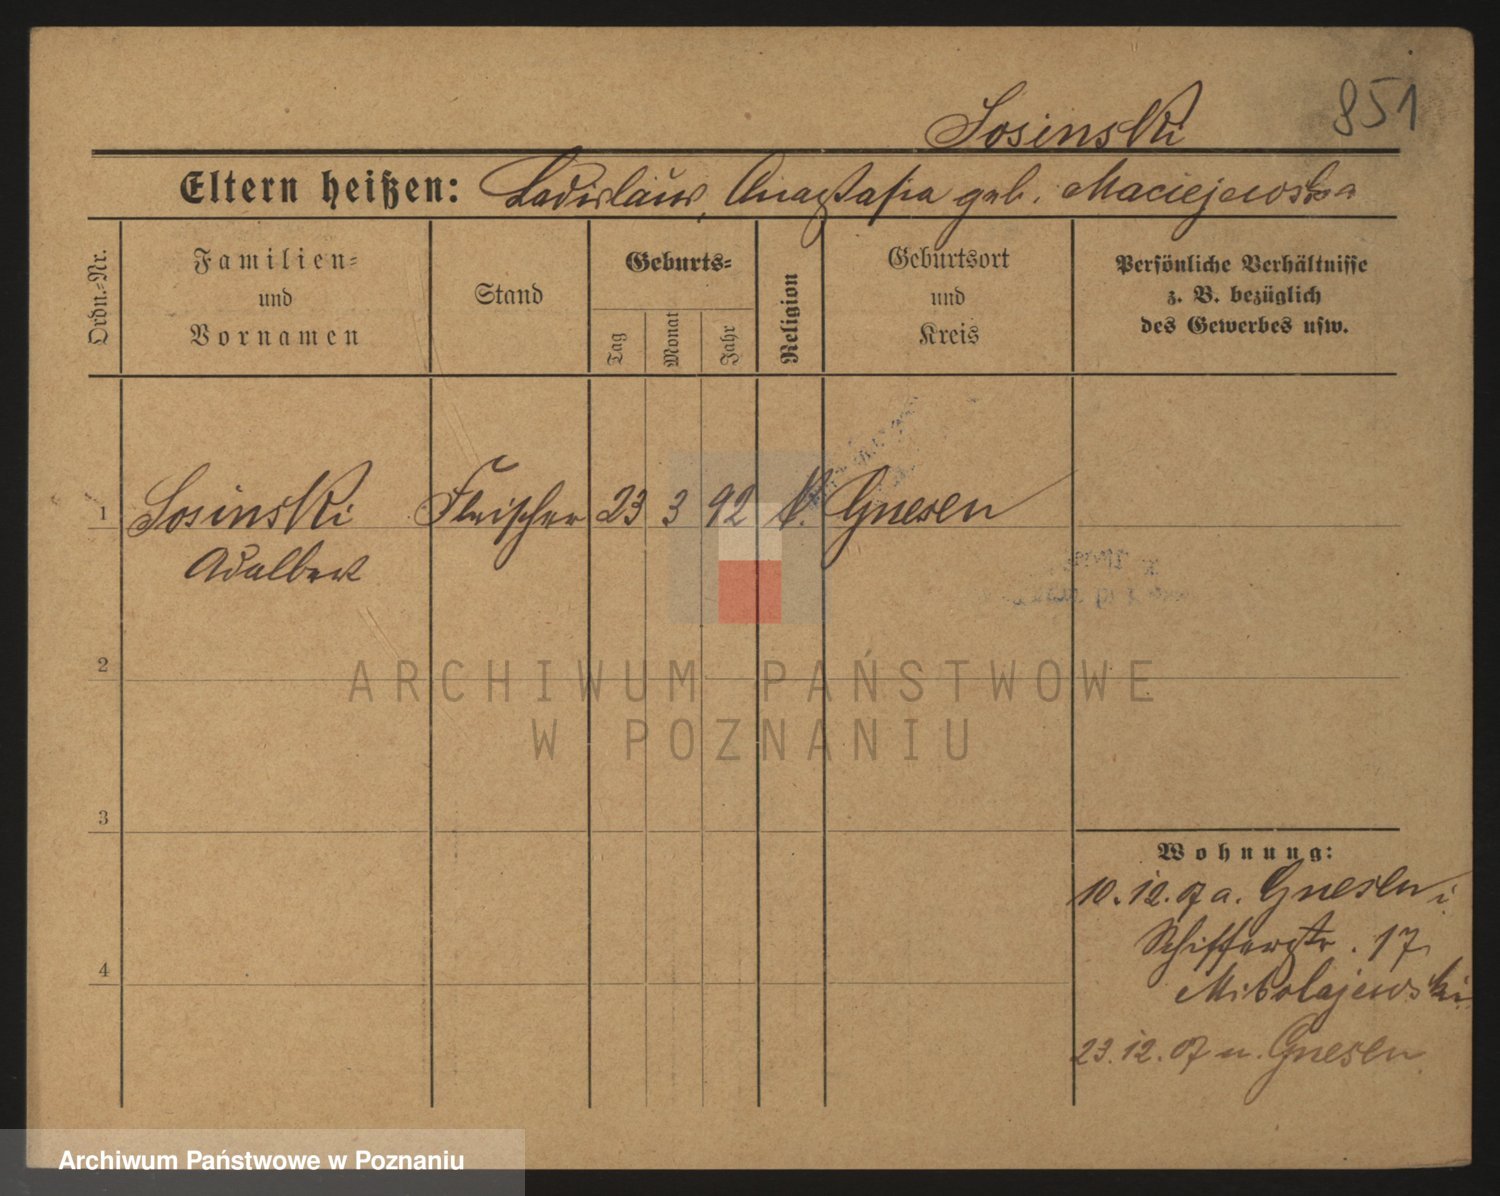 851
Sosinski
Eltern heißen: Ladislaus, Anastasia geb. Maciejewska
Ordn.-Nr.
Familien-
und
Vornamen
Stand
Geburts-
Tag
Monat
Jahr
Religion
Geburtsort
und
Kreis
Persönliche Verhältnisse
z. B. bezüglich
des Gewerbes usw.
1 Sosinski Fleischer 23 3 92 k. Gnesen
Adalbert
2
3
4
Wohnung:
10.12.07 a. Gnesen
Schifferstr. 17
Mikolajewski
23.12.07 n. Gnesen
ARCHIWUM PAŃSTWOWE
W POZNANIU
Archiwum Państwowe w Poznaniu